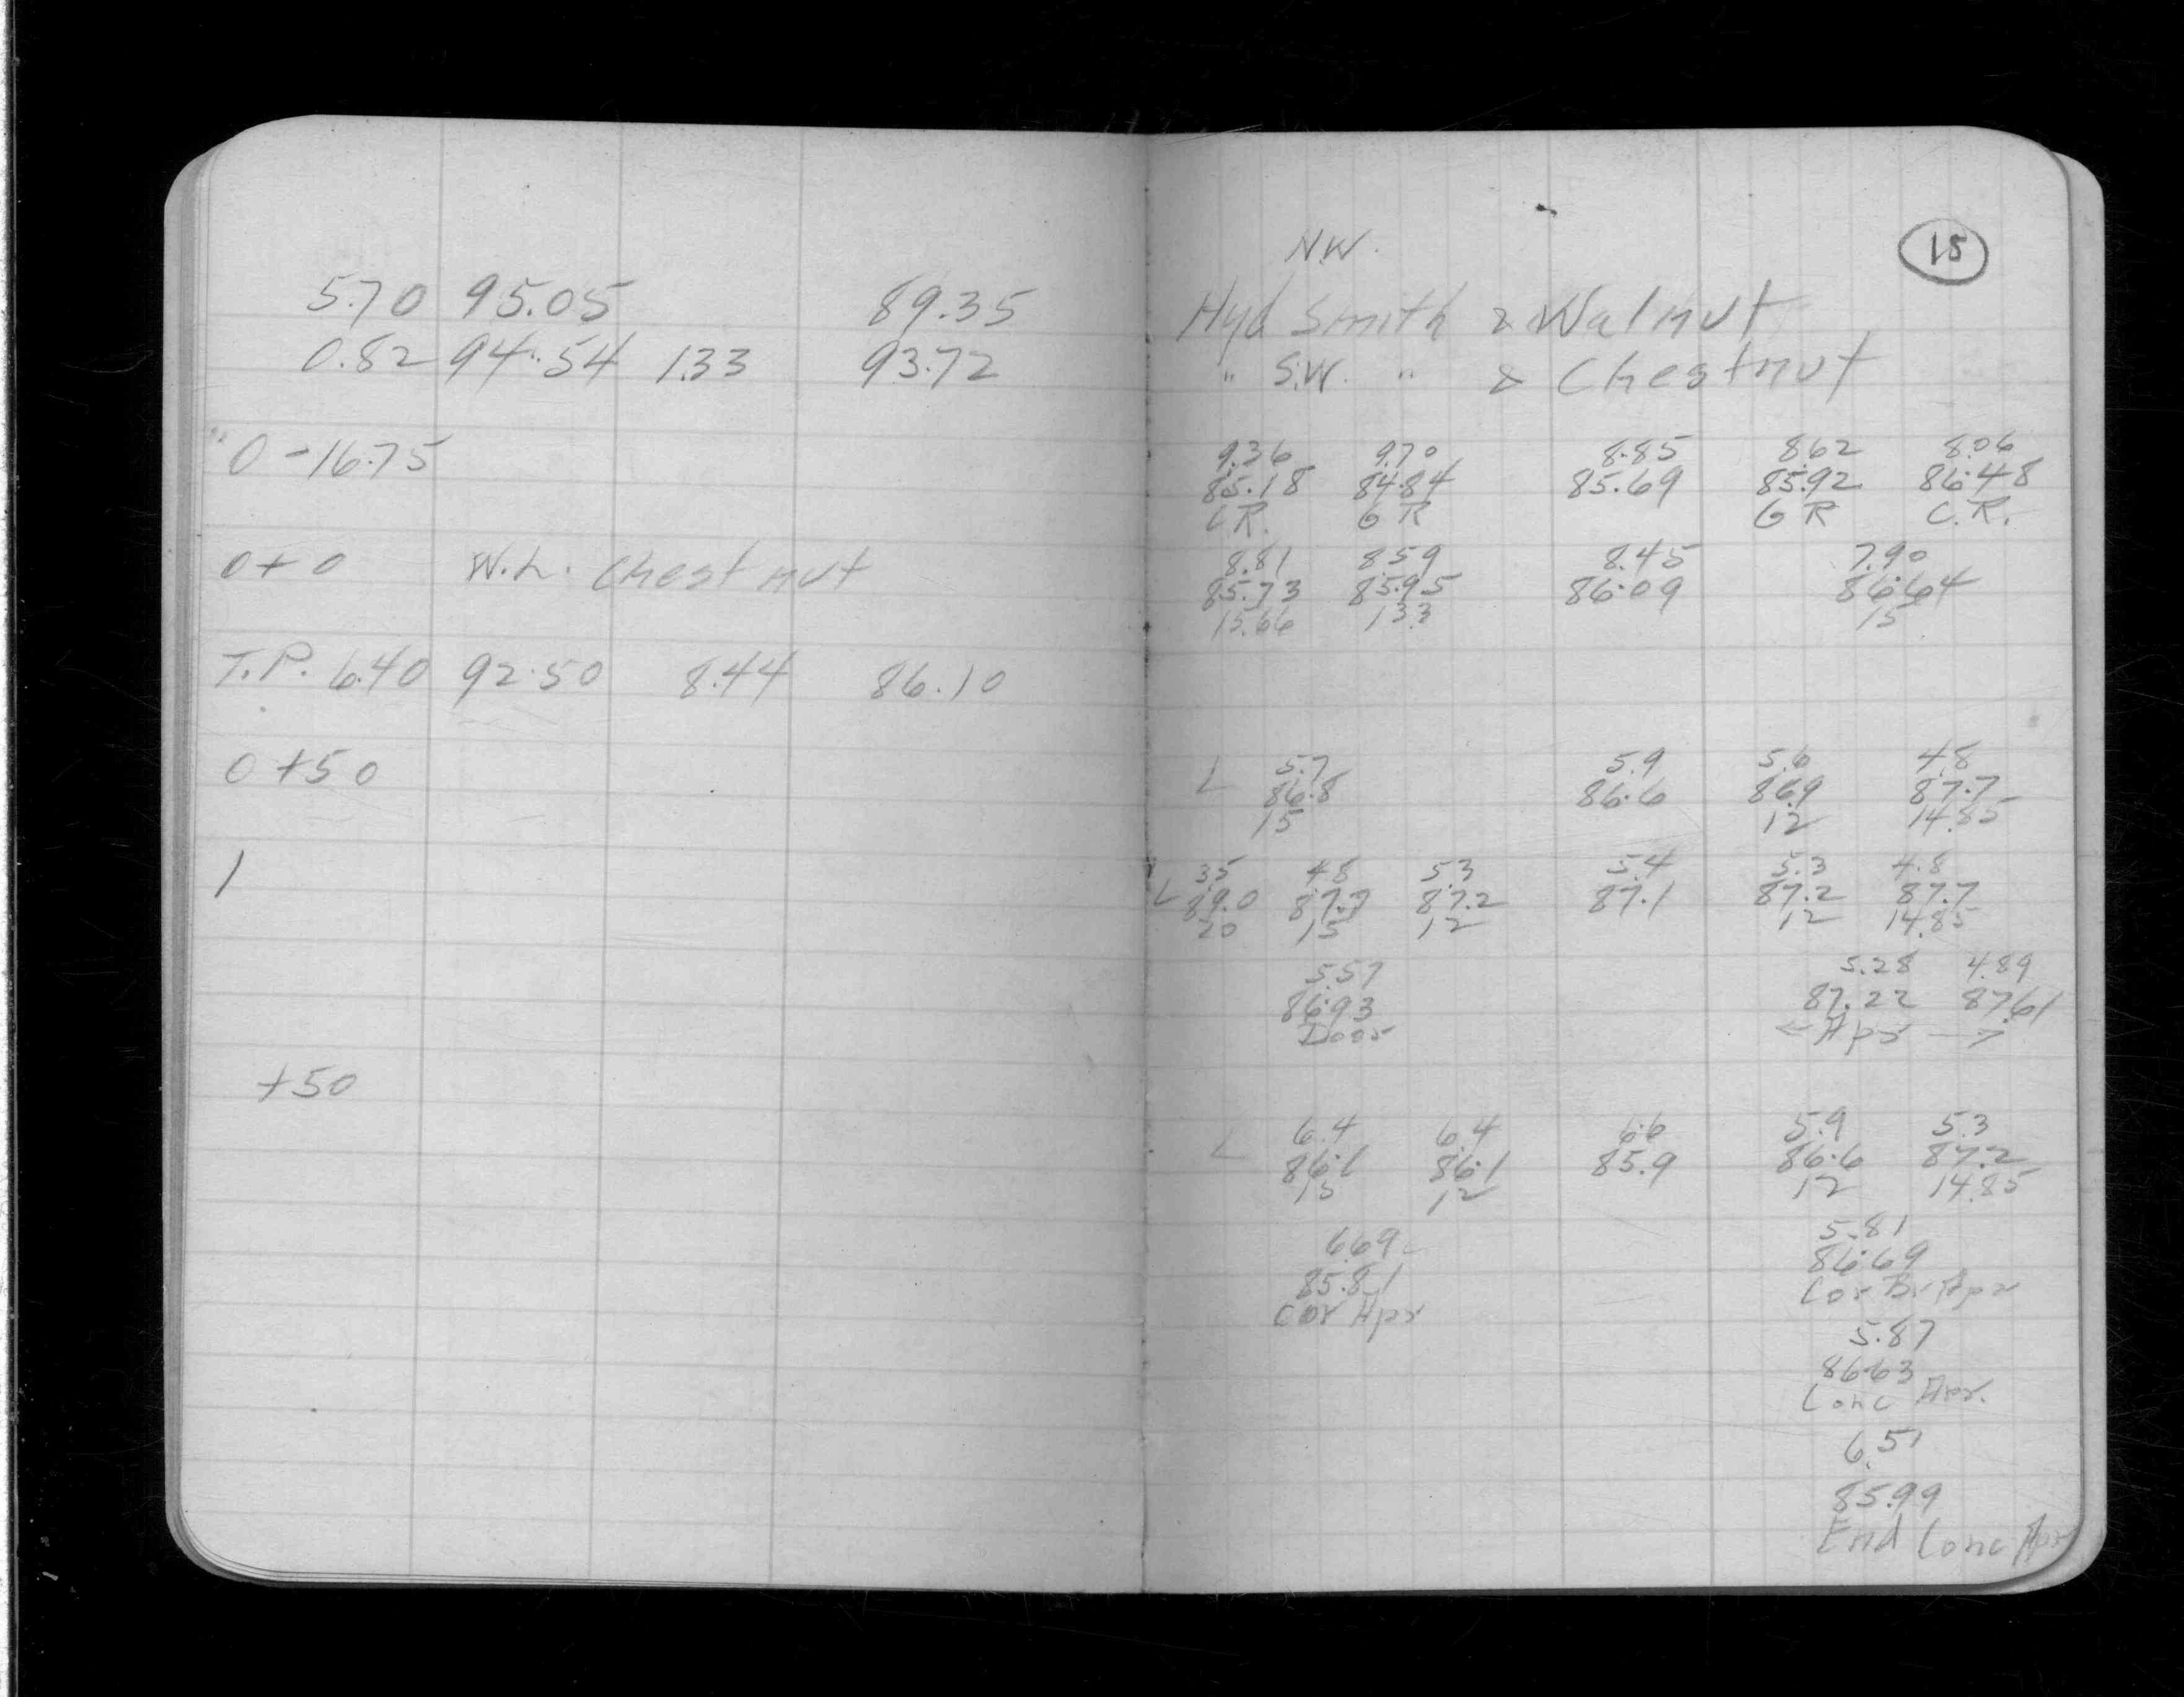 5.70 95.05 89.35
0.82 94.54 1.33 93.72
0-16.75
0+0 W.L. Chestnut
T.P. 6.40 92.50 8.44 86.10
0+50
1
+50
15
N.W.
Hyd Smith & Walnut
" S.W. " & Chestnut
9.36 9.70 8.85 8.62 8.06
85.18 84.84 85.69 85.92 86.48
C.R. G R G R C.R.
8.81 8.59 8.45 7.90
85.73 85.95 86.09 86.64
15.66 13.3 15
5.7 5.9 5.6 4.8
L 86.8 86.6 86.9 87.7
15 12 14.85
3.5 4.8 5.3 5.4 5.3 4.8
L 89.0 87.7 87.2 87.1 87.2 87.7
20 15 12 12 14.85
5.57 5.28 4.89
86.93 87.22 87.61
Door <- Apr ->
6.4 6.4 6.6 5.9 5.3
L 86.1 86.1 85.9 86.6 87.2
15 12 12 14.85
6.69 5.81
85.81 86.69
Cor Apr Cor Br Apr
5.87
86.63
Conc Apr.
6.51
85.99
End Conc Apr